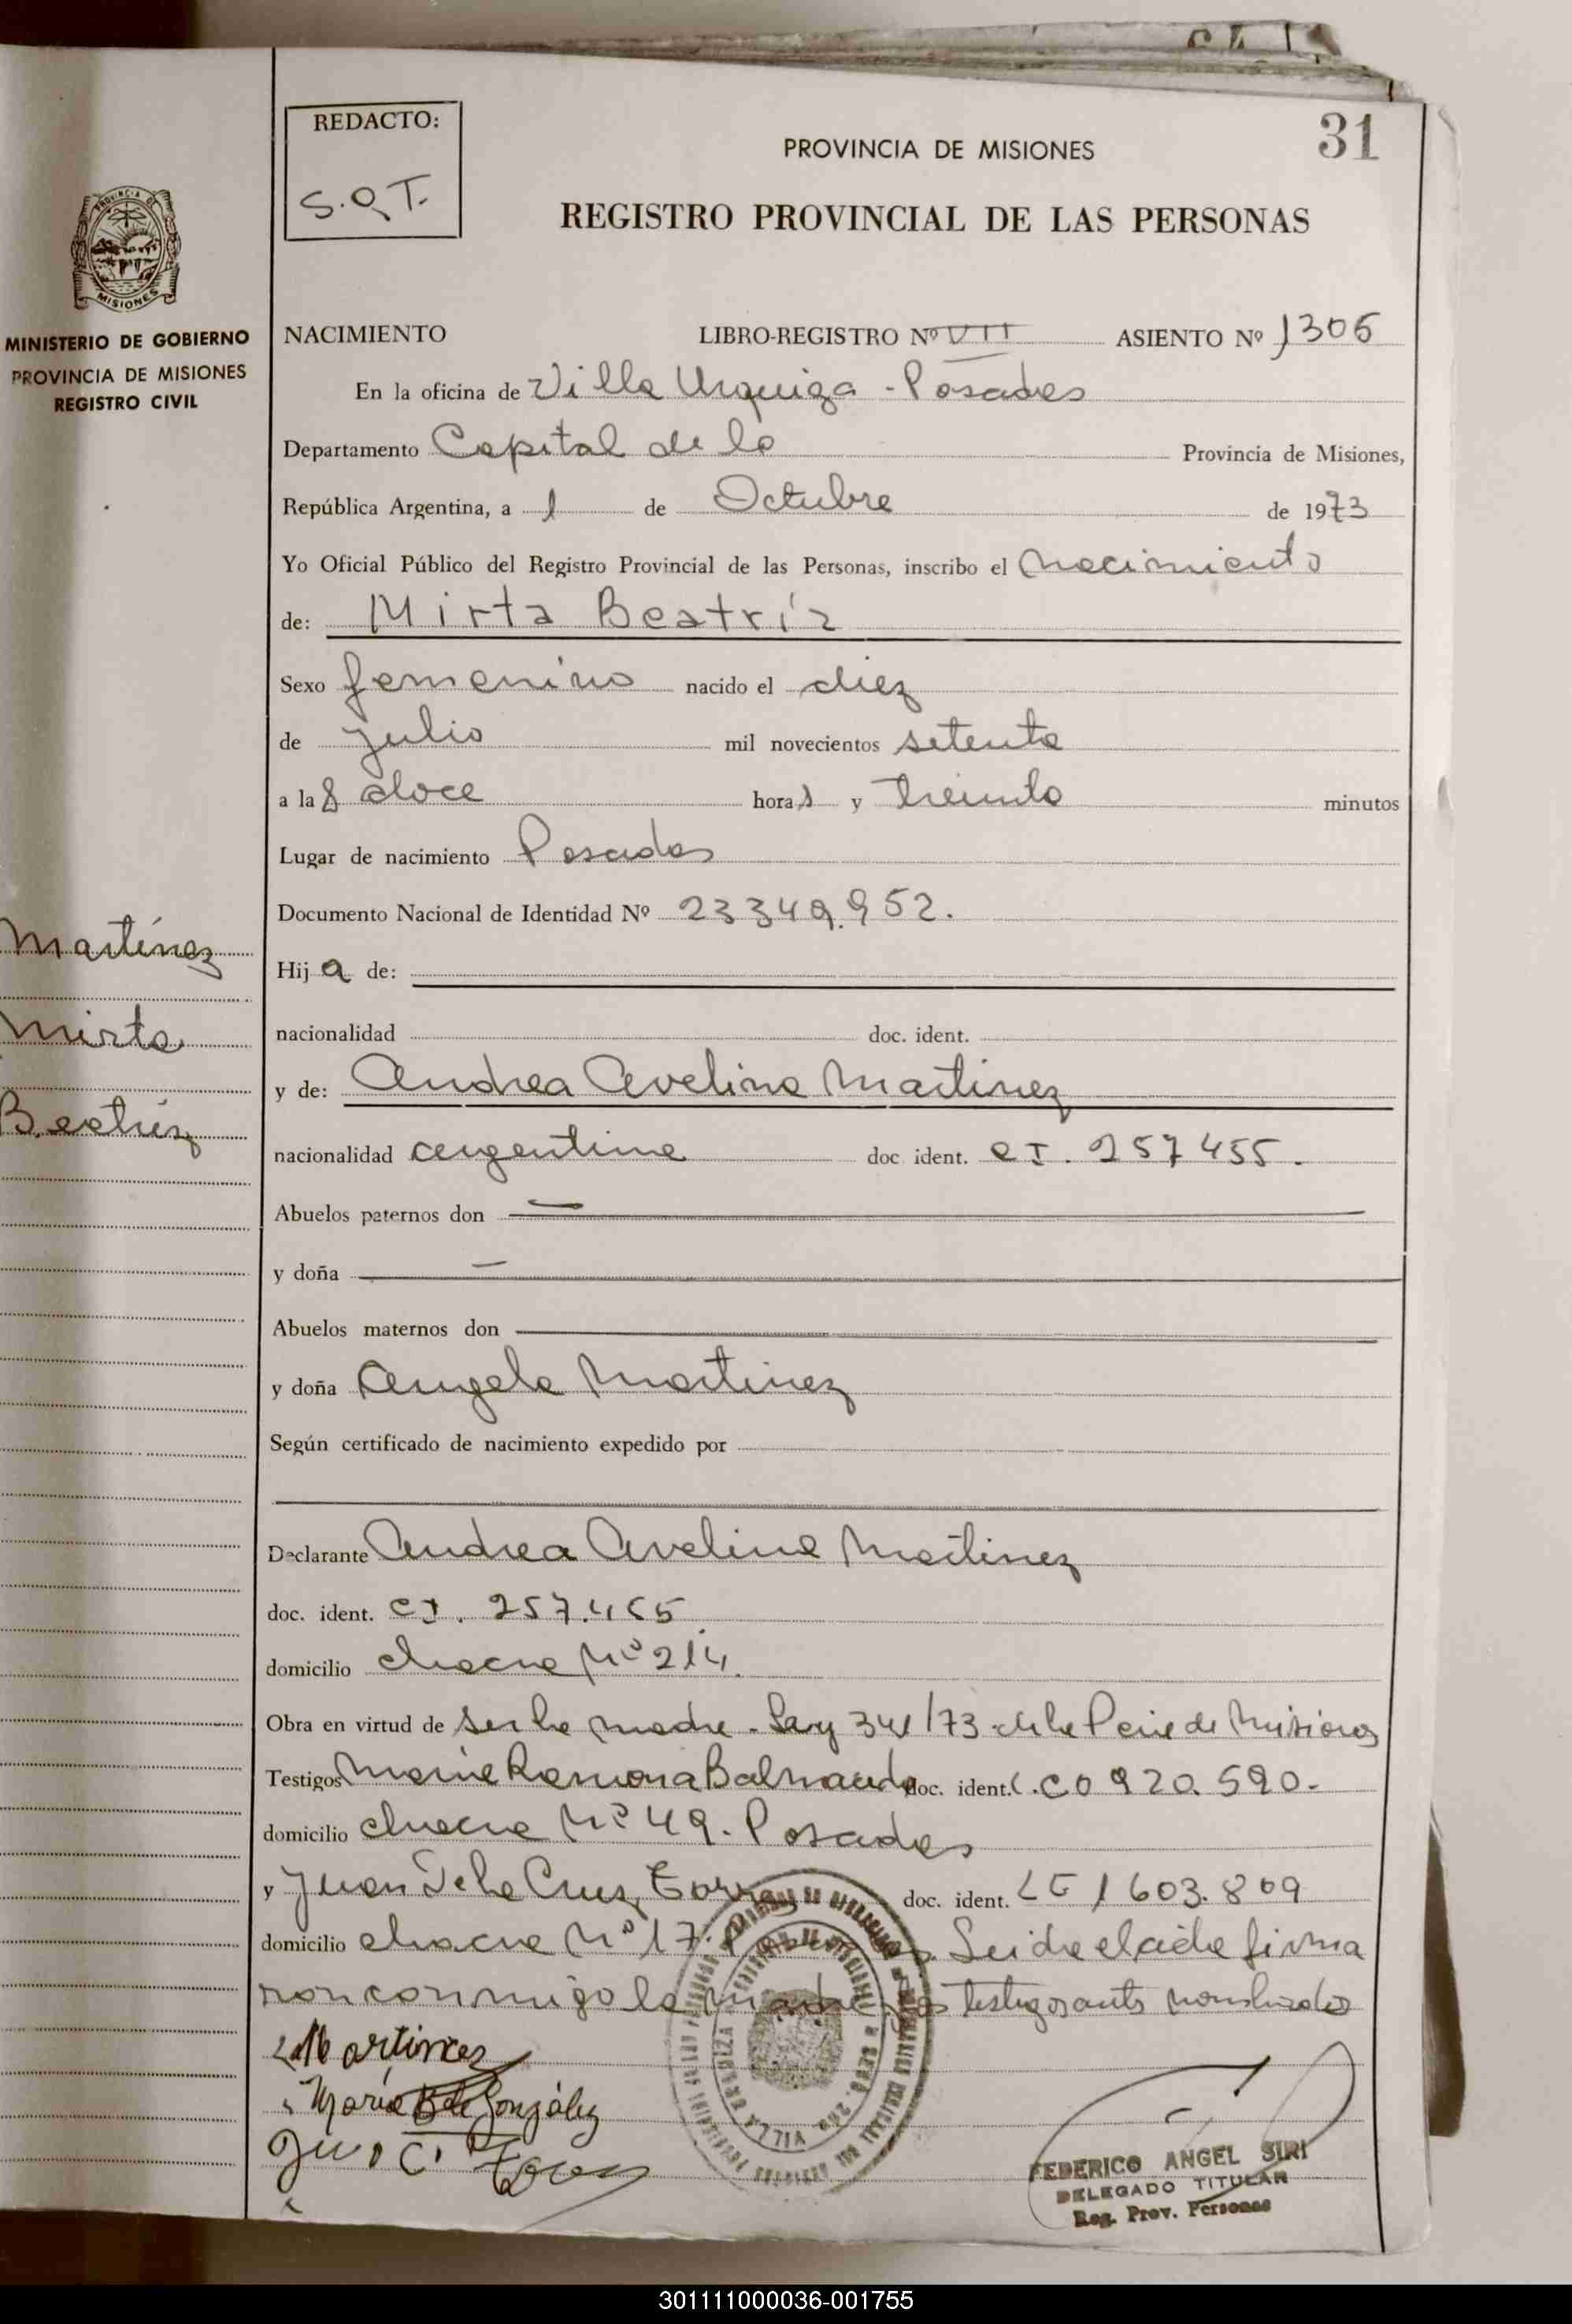 31
REDACTO:
S.Q.T.
PROVINCIA DE MISIONES
REGISTRO PROVINCIAL DE LAS PERSONAS
MISIONES
MINISTERIO DE GOBIERNO
PROVINCIA DE MISIONES
REGISTRO CIVIL
NACIMIENTO LIBRO-REGISTRO Nº VII ASIENTO Nº 1305
En la oficina de Villa Urquiza - Posadas
Departamento Capital de la Provincia de Misiones,
República Argentina, a 1 de Octubre de 1973
Yo Oficial Público del Registro Provincial de las Personas, inscribo el nacimiento
de: Mirta Beatríz
Sexo femenino nacido el diez
de julio mil novecientos setenta
a las doce horas y treinta minutos
Lugar de nacimiento Posadas
Documento Nacional de Identidad Nº 23349.952.
Martínez
Hija de:
nacionalidad doc. ident.
Mirta
y de: Andrea Avelina Martinez
Beatríz
nacionalidad argentina doc ident. CI. 257455.
Abuelos paternos don —
y doña —
Abuelos maternos don
y doña Angela Martinez
Según certificado de nacimiento expedido por
Declarante Andrea Avelina Martinez
doc. ident. CI. 257.455
domicilio chacra Nº 214.
Obra en virtud de ser la madre. Ley 341/73 de la Pcia de Misiones
Testigos Maria Ramona doc. ident. L.C 0920.590.
domicilio chacra Nº 49. Posadas
y Juan De la Cruz doc. ident. LE 1603.809
domicilio chacra Nº 17. Leida el acta firma
ron conmigo la madre y los testigos antes nombrados
Martinez
María B de González
FEDERICO ANGEL SIRI
DELEGADO TITULAR
Reg. Prov. Personas
301111000036-001755